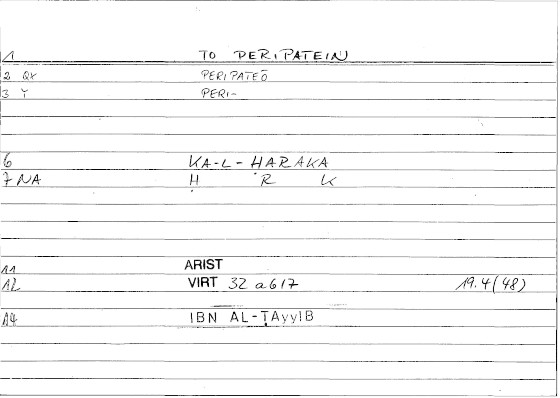 1 TO PERIPATEIN
2 QX PERIPATEŌ
3 Y PERI-
6 KA-L-ḤARAKA
7 NA Ḥ R K
11 ARIST
12 VIRT 32 a 6/7 19.4 (48)
14 IBN AL-ṬAyyIB